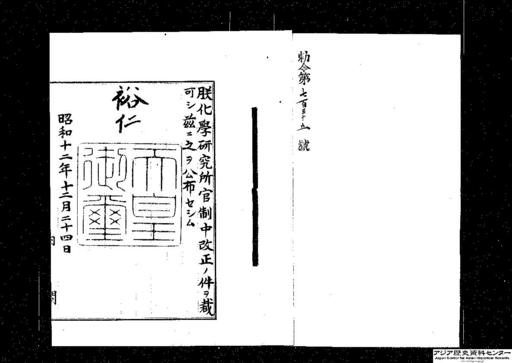 勅令第七百三十五號
朕化學研究所官制中改正ノ件ヲ裁
可シ茲ニ之ヲ公布セシム
裕仁
天皇
御璽
昭和十二年十二月二十四日
アジア歴史資料センター
Japan Center for Asian Historical Records